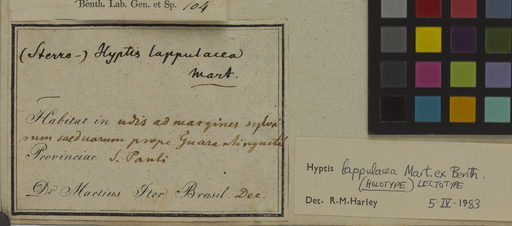 Benth. Lab. Gen. et Sp. 104
(Sterro-) Hyptis lappulacea
Mart.
Habitat in udis ad margines sylva
rum caeduarum prope Guaratingueta
Provinciae S. Pauli
Dr. Martius Iter Brasil. Dec.
Hyptis lappulacea Mart. ex Benth.
(HOLOTYPE) LECTOTYPE
Det. R.M.Harley 5-IV-1983